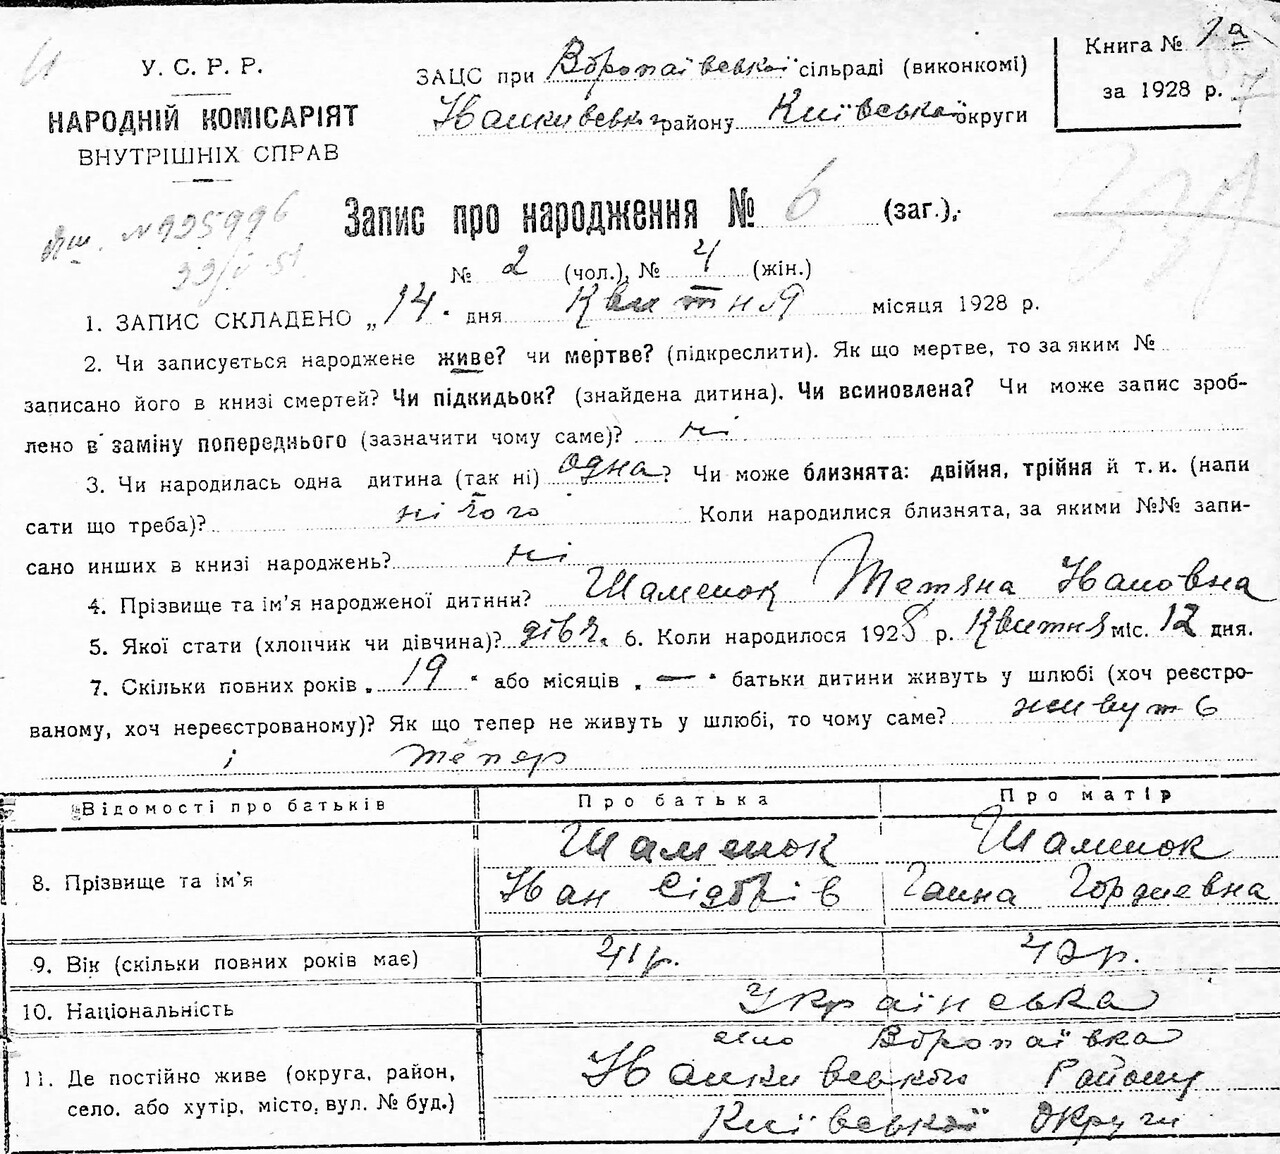 У. С. Р. Р.
НАРОДНІЙ КОМІСАРІЯТ
ВНУТРІШНІХ СПРАВ
ЗАЦС при Воропаївської сільраді (виконкомі)
Іванківського району Київської округи
Книга № 1а
за 1928 р.
№ 925996
Запис про народження № 6 (заг.),
№ 2 (чол.), № 4 (жін.)
1. ЗАПИС СКЛАДЕНО „14" дня Квитня місяця 1928 р.
2. Чи записується народжене живе? чи мертве? (підкреслити). Як що мертве, то за яким №
записано його в книзі смертей? Чи підкидьок? (знайдена дитина). Чи всиновлена? Чи може запис зроб-
лено в заміну попереднього (зазначити чому саме)? ні
3. Чи народилась одна дитина (так ні) одна? Чи може близнята: двійня, трійня й т. и. (напи
сати що треба)? нічого Коли народилися близнята, за якими №№ запи-
сано инших в книзі народжень? ні
4. Прізвище та ім'я народженої дитини? Шаменок Тетяна Івановна
5. Якої стати (хлопчик чи дівчина)? дівч. 6. Коли народилося 1928 р. Квитня міс. 12 дня.
7. Скільки повних років „19" або місяців „—" батьки дитини живуть у шлюбі (хоч реєстро-
ваному, хоч нереєстрованому)? Як що тепер не живуть у шлюбі, то чому саме? живуть
і тепер
Відомості про батьків Про батька Про матір
Шаменок Шаменок
8. Прізвище та ім'я Іван Ганна Гордиевна
9. Вік (скільки повних років має) 41 р. 42 р.
10. Національність Українська
село Воропаївка
11. Де постійно живе (округа, район, Іванкивського Району
село, або хутір, місто, вул. № буд.) Київської Округи